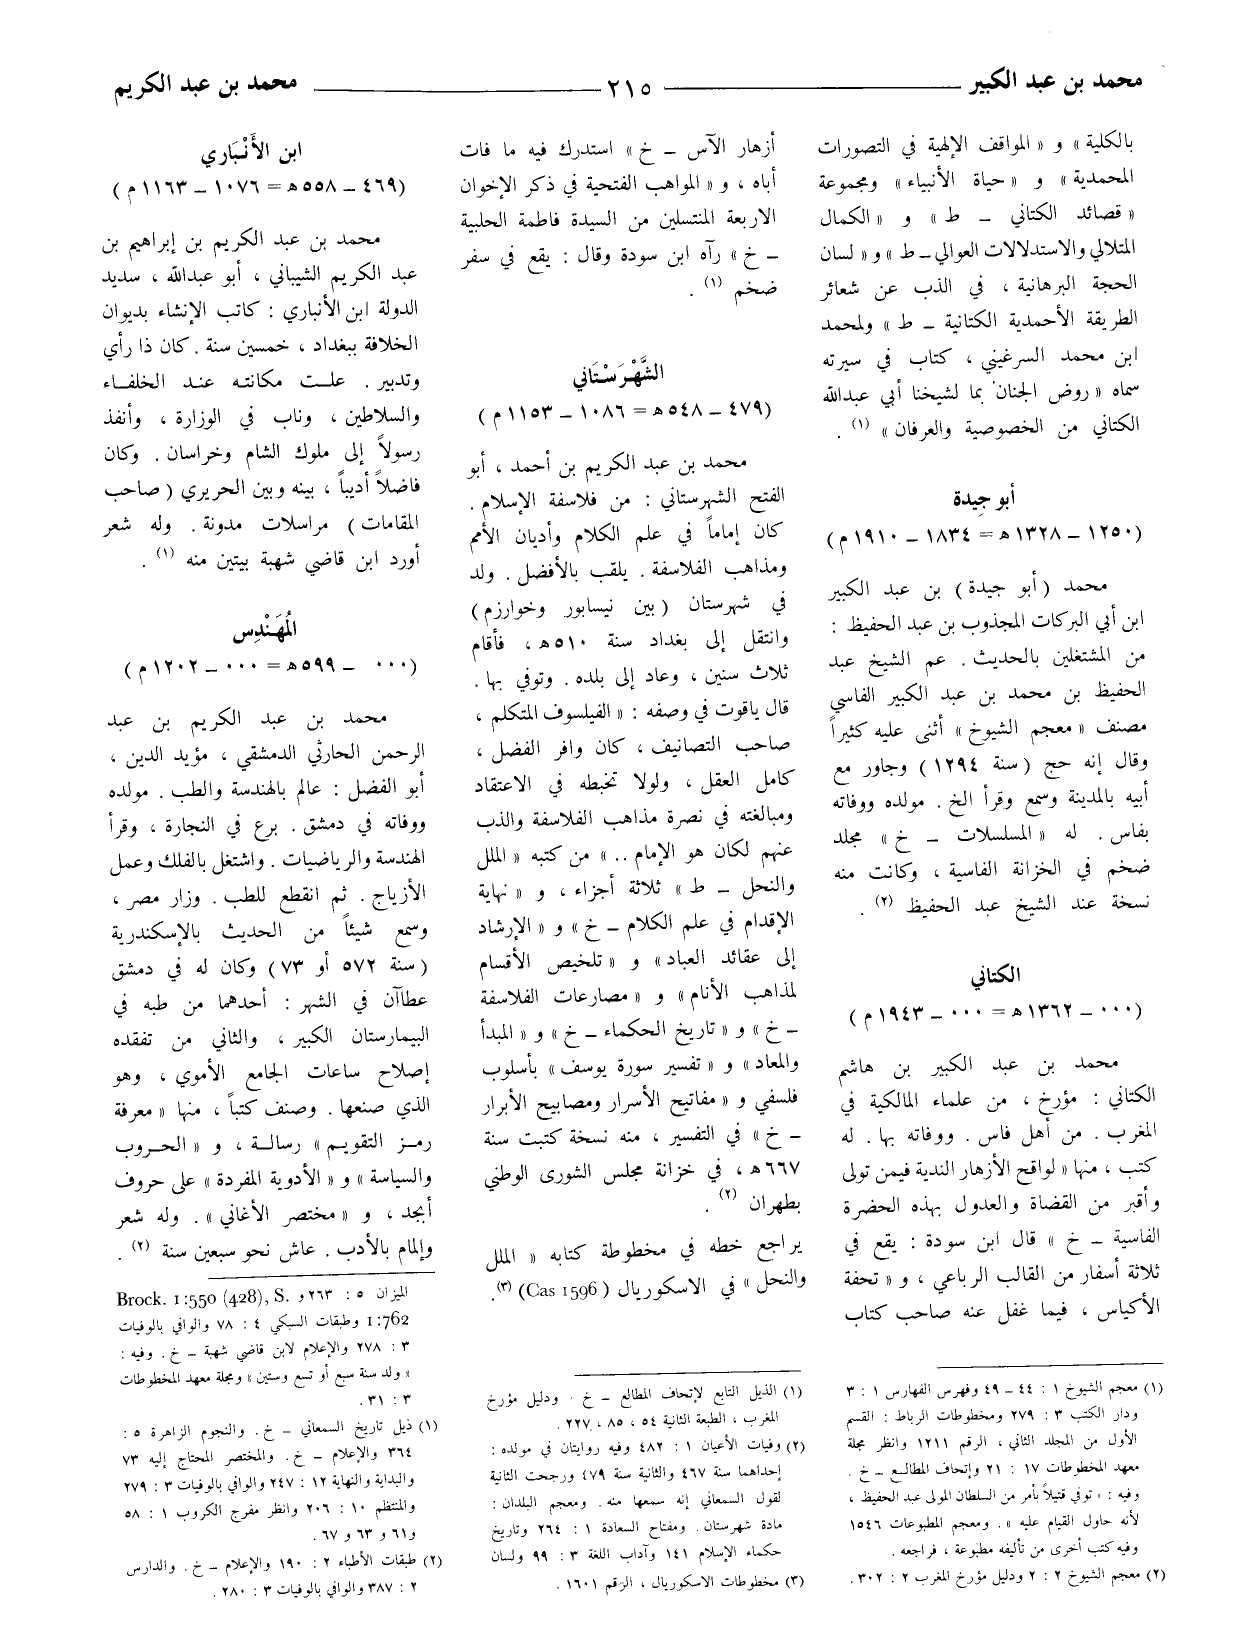 محمد بن عبد الكبير
٢١٥
محمد بن عبد الكريم
بالكلية » و « المواقف الإلهية في التصورات
المحمدية » و « حياة الأنبياء » ومجموعة
« قصائد الكتاني ــ ط » و « الكمال
المتلالي والاستدلالات العوالي ــ ط » و « لسان
الحجة البرهانية ، في الذب عن شعائر
الطريقة الأحمدية الكتانية ــ ط » ولمحمد
ابن محمد السرغيني ، كتاب في سيرته
سماه « روض الجنان بما لشيخنا أبي عبدالله
الكتاني من الخصوصية والعرفان » (١) .
أبو جيدة
(١٢٥٠ ــ ١٣٢٨ ه = ١٨٣٤ ــ ١٩١٠ م)
محمد ( أبو جيدة ) بن عبد الكبير
ابن أبي البركات المجذوب بن عبد الحفيظ :
من المشتغلين بالحديث . عم الشيخ عبد
الحفيظ بن محمد بن عبد الكبير الفاسي
مصنف « معجم الشيوخ » أثنى عليه كثيراً
وقال إنه حج ( سنة ١٢٩٤ ) وجاور مع
أبيه بالمدينة وسمع وقرأ الخ . مولده ووفاته
بفاس . له « المسلسلات ــ خ » مجلد
ضخم في الخزانة الفاسية ، وكانت منه
نسخة عند الشيخ عبد الحفيظ (٢) .
الكتاني
(٠٠٠ ــ ١٣٦٢ ه = ٠٠٠ ــ ١٩٤٣ م)
محمد بن عبد الكبير بن هاشم
الكتاني : مؤرخ ، من علماء المالكية في
المغرب . من أهل فاس . ووفاته بها . له
كتب ، منها « لواقح الأزهار الندية فيمن تولى
وأقبر من القضاة والعدول بهذه الحضرة
الفاسية ــ خ » قال ابن سودة : يقع في
ثلاثة أسفار من القالب الرباعي ، و « تحفة
الأكياس ، فيما غفل عنه صاحب كتاب
(١) معجم الشيوخ ١ : ٤٤ ــ ٤٩ وفهرس الفهارس ١ : ٣
ودار الكتب ٣ : ٢٧٩ ومخطوطات الرباط : القسم
الأول من المجلد الثاني ، الرقم ١٢١١ وانظر مجلة
معهد المخطوطات ١٧ : ٢١ وإتحاف المطالع ــ خ .
وفيه : « توفي قتيلاً بأمر من السلطان المولى عبد الحفيظ ،
لأنه حاول القيام عليه » . ومعجم المطبوعات ١٥٤٦
وفيه كتب أخرى من تأليفه مطبوعة ، فراجعه .
(٢) معجم الشيوخ ٢ : ٢ ودليل مؤرخ المغرب ٢ : ٣٠٢ .
أزهار الآس ــ خ » استدرك فيه ما فات
أباه ، و « المواهب الفتحية في ذكر الإخوان
الاربعة المنتسلين من السيدة فاطمة الحلبية
ــ خ » رآه ابن سودة وقال : يقع في سفر
ضخم (١) .
الشَّهْرَسْتاني
(٤٧٩ ــ ٥٤٨ ه = ١٠٨٦ ــ ١١٥٣ م)
محمد بن عبد الكريم بن أحمد ، أبو
الفتح الشهرستاني : من فلاسفة الإسلام .
كان إماماً في علم الكلام وأديان الأمم
ومذاهب الفلاسفة . يلقب بالأفضل . ولد
في شهرستان ( بين نيسابور وخوارزم )
وانتقل إلى بغداد سنة ٥١٠ ه ، فأقام
ثلاث سنين ، وعاد إلى بلده . وتوفي بها .
قال ياقوت في وصفه : « الفيلسوف المتكلم ،
صاحب التصانيف ، كان وافر الفضل ،
كامل العقل ، ولولا تخبطه في الاعتقاد
ومبالغته في نصرة مذاهب الفلاسفة والذب
عنهم لكان هو الإمام .. » من كتبه « الملل
والنحل ــ ط » ثلاثة أجزاء ، و « نهاية
الإقدام في علم الكلام ــ خ » و « الإرشاد
إلى عقائد العباد » و « تلخيص الأقسام
لمذاهب الأنام » و « مصارعات الفلاسفة
ــ خ » و « تاريخ الحكماء ــ خ » و « المبدأ
والمعاد » و « تفسير سورة يوسف » بأسلوب
فلسفي و « مفاتيح الأسرار ومصابيح الأبرار
ــ خ » في التفسير ، منه نسخة كتبت سنة
٦٦٧ ه ، في خزانة مجلس الشورى الوطني
بطهران (٢) .
يراجع خطه في مخطوطة كتابه « الملل
والنحل » في الاسكوريال ( Cas 1596 ) (٣) .
(١) الذيل التابع لإتحاف المطالع ــ خ . ودليل مؤرخ
المغرب ، الطبعة الثانية ٥٤ ، ٨٥ ، ٢٢٧ .
(٢) وفيات الأعيان ١ : ٤٨٢ وفيه روايتان في مولده :
إحداهما سنة ٤٦٧ والثانية سنة ٤٧٩ ورجحت الثانية
لقول السمعاني إنه سمعها منه . ومعجم البلدان :
مادة شهرستان . ومفتاح السعادة ١ : ٢٦٤ وتاريخ
حكماء الإسلام ١٤١ وآداب اللغة ٣ : ٩٩ ولسان
(٣) مخطوطات الاسكوريال ، الرقم ١٦٠١ .
ابن الأَنْبَاري
(٤٦٩ ــ ٥٥٨ ه = ١٠٧٦ ــ ١١٦٣ م)
محمد بن عبد الكريم بن إبراهيم بن
عبد الكريم الشيباني ، أبو عبدالله ، سديد
الدولة ابن الأنباري : كاتب الإنشاء بديوان
الخلافة ببغداد ، خمسين سنة . كان ذا رأي
وتدبير . علت مكانته عند الخلفاء
والسلاطين ، وناب في الوزارة ، وأنفذ
رسولاً إلى ملوك الشام وخراسان . وكان
فاضلاً أديباً ، بينه وبين الحريري ( صاحب
المقامات ) مراسلات مدونة . وله شعر
أورد ابن قاضي شهبة بيتين منه (١) .
المُهَنْدِس
(٠٠٠ ــ ٥٩٩ ه = ٠٠٠ ــ ١٢٠٢ م)
محمد بن عبد الكريم بن عبد
الرحمن الحارثي الدمشقي ، مؤيد الدين ،
أبو الفضل : عالم بالهندسة والطب . مولده
ووفاته في دمشق . برع في النجارة ، وقرأ
الهندسة والرياضيات . واشتغل بالفلك وعمل
الأزياج . ثم انقطع للطب . وزار مصر ،
وسمع شيئاً من الحديث بالإسكندرية
( سنة ٥٧٢ أو ٧٣ ) وكان له في دمشق
عطاآن في الشهر : أحدهما من طبه في
البيمارستان الكبير ، والثاني من تفقده
إصلاح ساعات الجامع الأموي ، وهو
الذي صنعها . وصنف كتباً ، منها « معرفة
رمز التقويم » رسالة ، و « الحروب
والسياسة » و « الأدوية المفردة » على حروف
أبجد ، و « مختصر الأغاني » . وله شعر
وإلمام بالأدب . عاش نحو سبعين سنة (٢) .
الميزان ٥ : ٢٦٣ و Brock. 1:550 (428), S.
1:762 وطبقات السبكي ٤ : ٧٨ والوافي بالوفيات
٣ : ٢٧٨ والإعلام لابن قاضي شهبة ــ خ . وفيه :
« ولد سنة سبع أو تسع وستين » ومجلة معهد المخطوطات
٣ : ٣١ .
(١) ذيل تاريخ السمعاني ــ خ . والنجوم الزاهرة ٥ :
٣٦٤ والإعلام ــ خ . والمختصر المحتاج إليه ٧٣
والبداية والنهاية ١٢ : ٢٤٧ والوافي بالوفيات ٣ : ٢٧٩
والمنتظم ١٠ : ٢٠٦ وانظر مفرج الكروب ١ : ٥٨
و٦١ و ٦٣ و ٦٧ .
(٢) طبقات الأطباء ٢ : ١٩٠ والإعلام ــ خ . والدارس
٢ : ٣٨٧ والوافي بالوفيات ٣ : ٢٨٠ .